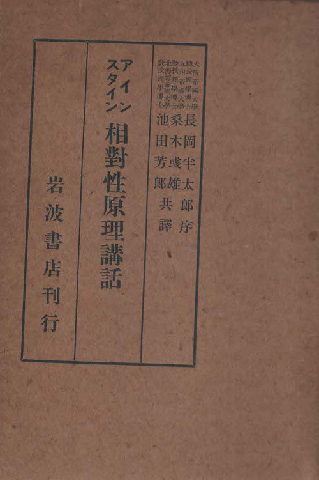 長岡半太郎序
桑木彧雄
池田芳郎共譯
アインスタイン
相對性原理講話
岩波書店刊行